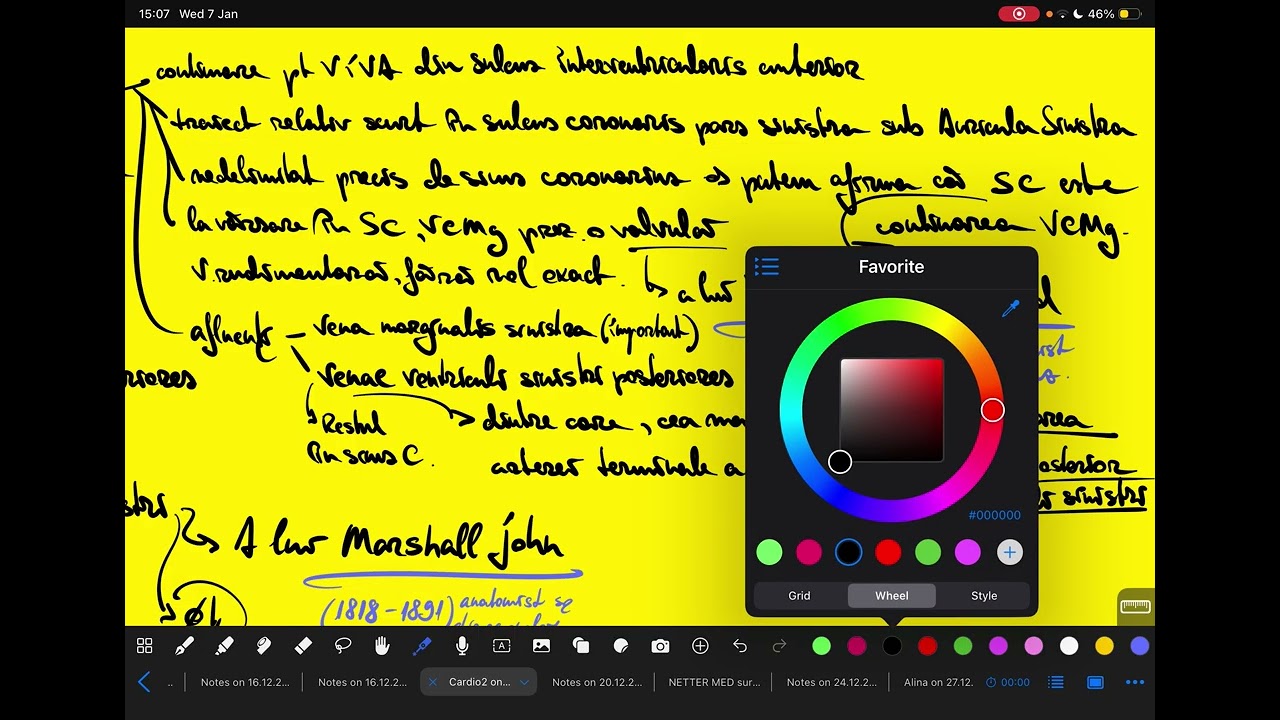 15:07 Wed 7 Jan 46%
continuare pt VIVA din sulcus interventricularis anterior
traiect relativ scurt în sulcus coronaris pars sinistra sub Auricula Sinistra
nedelimitat precis de sinus coronarius putem afirma că SC este
continuarea VCMg.
la vărsare în SC, VCMg prez. o valvulă
v. rudimentară, fără rol exact.
a lui
afluenți – vena marginalis sinistra (important)
venae ventriculi sinistri posteriores
dintre care, cea
Restul
în sinus C.
arterei terminale a
A lui Marshall john
(1818-1891) anatomist și
Favorite
#000000
Grid Wheel Style
Notes on 16.12.2... Notes on 16.12.2... Cardio2 on... Notes on 20.12.2... NETTER MED sur... Notes on 24.12.2... Alina on 27.12. 00:00